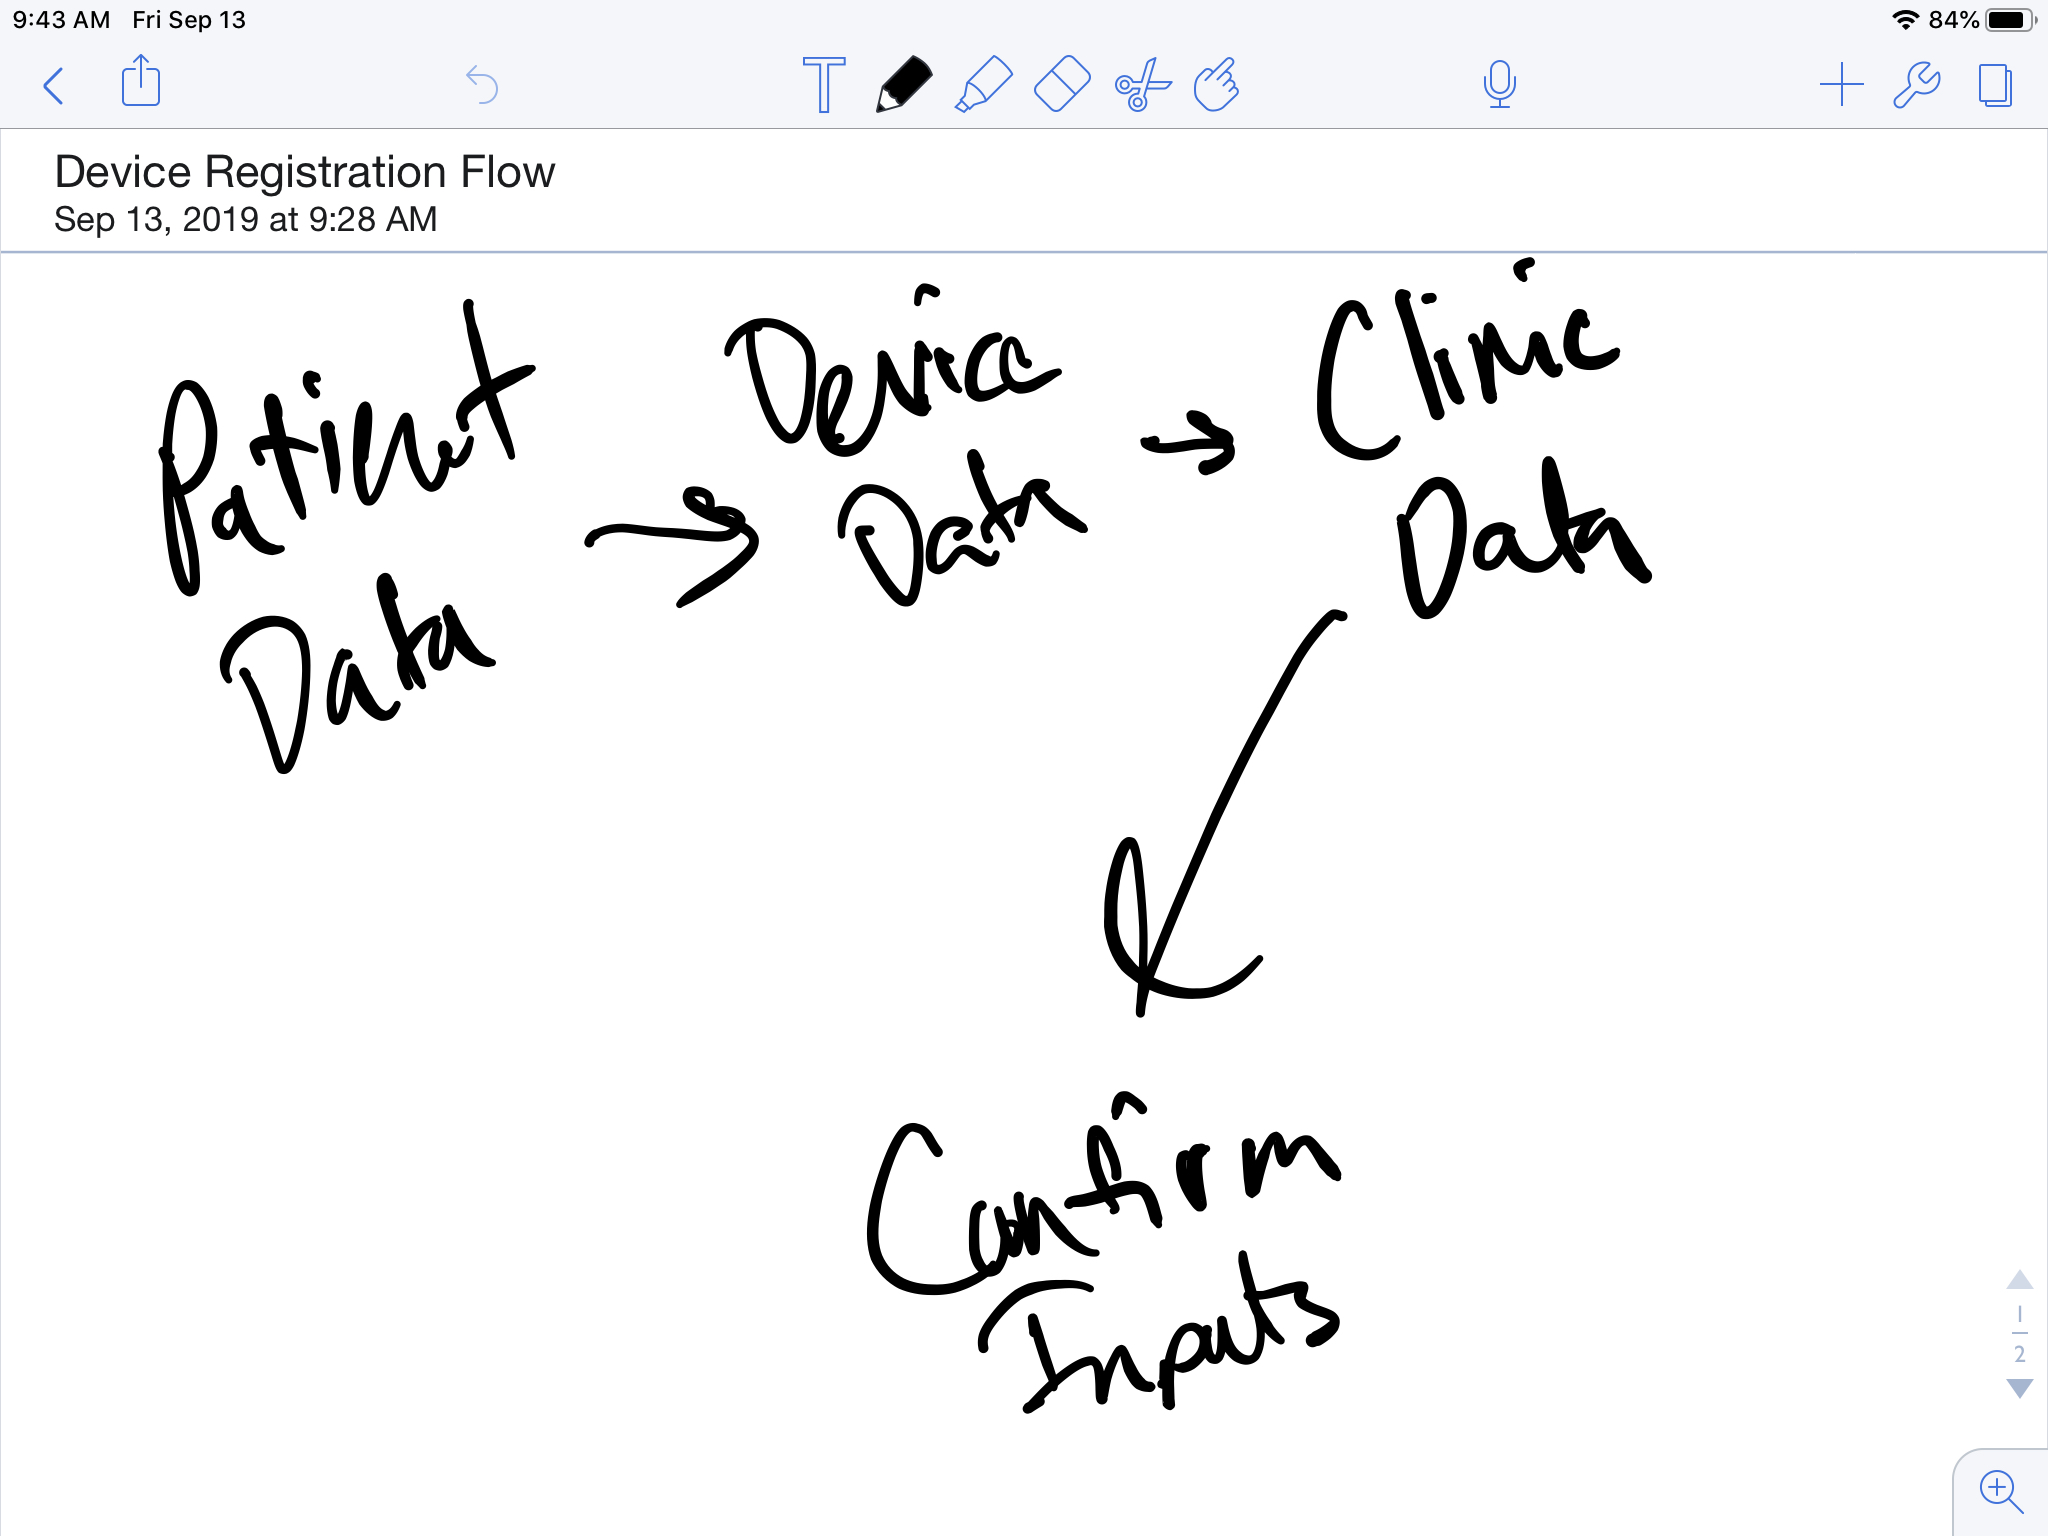 9:43 AM Fri Sep 13
84%
T
Device Registration Flow
Sep 13, 2019 at 9:28 AM
Patient
Data
Device
Data
Clinic
Data
Confirm
Inputs
1
2